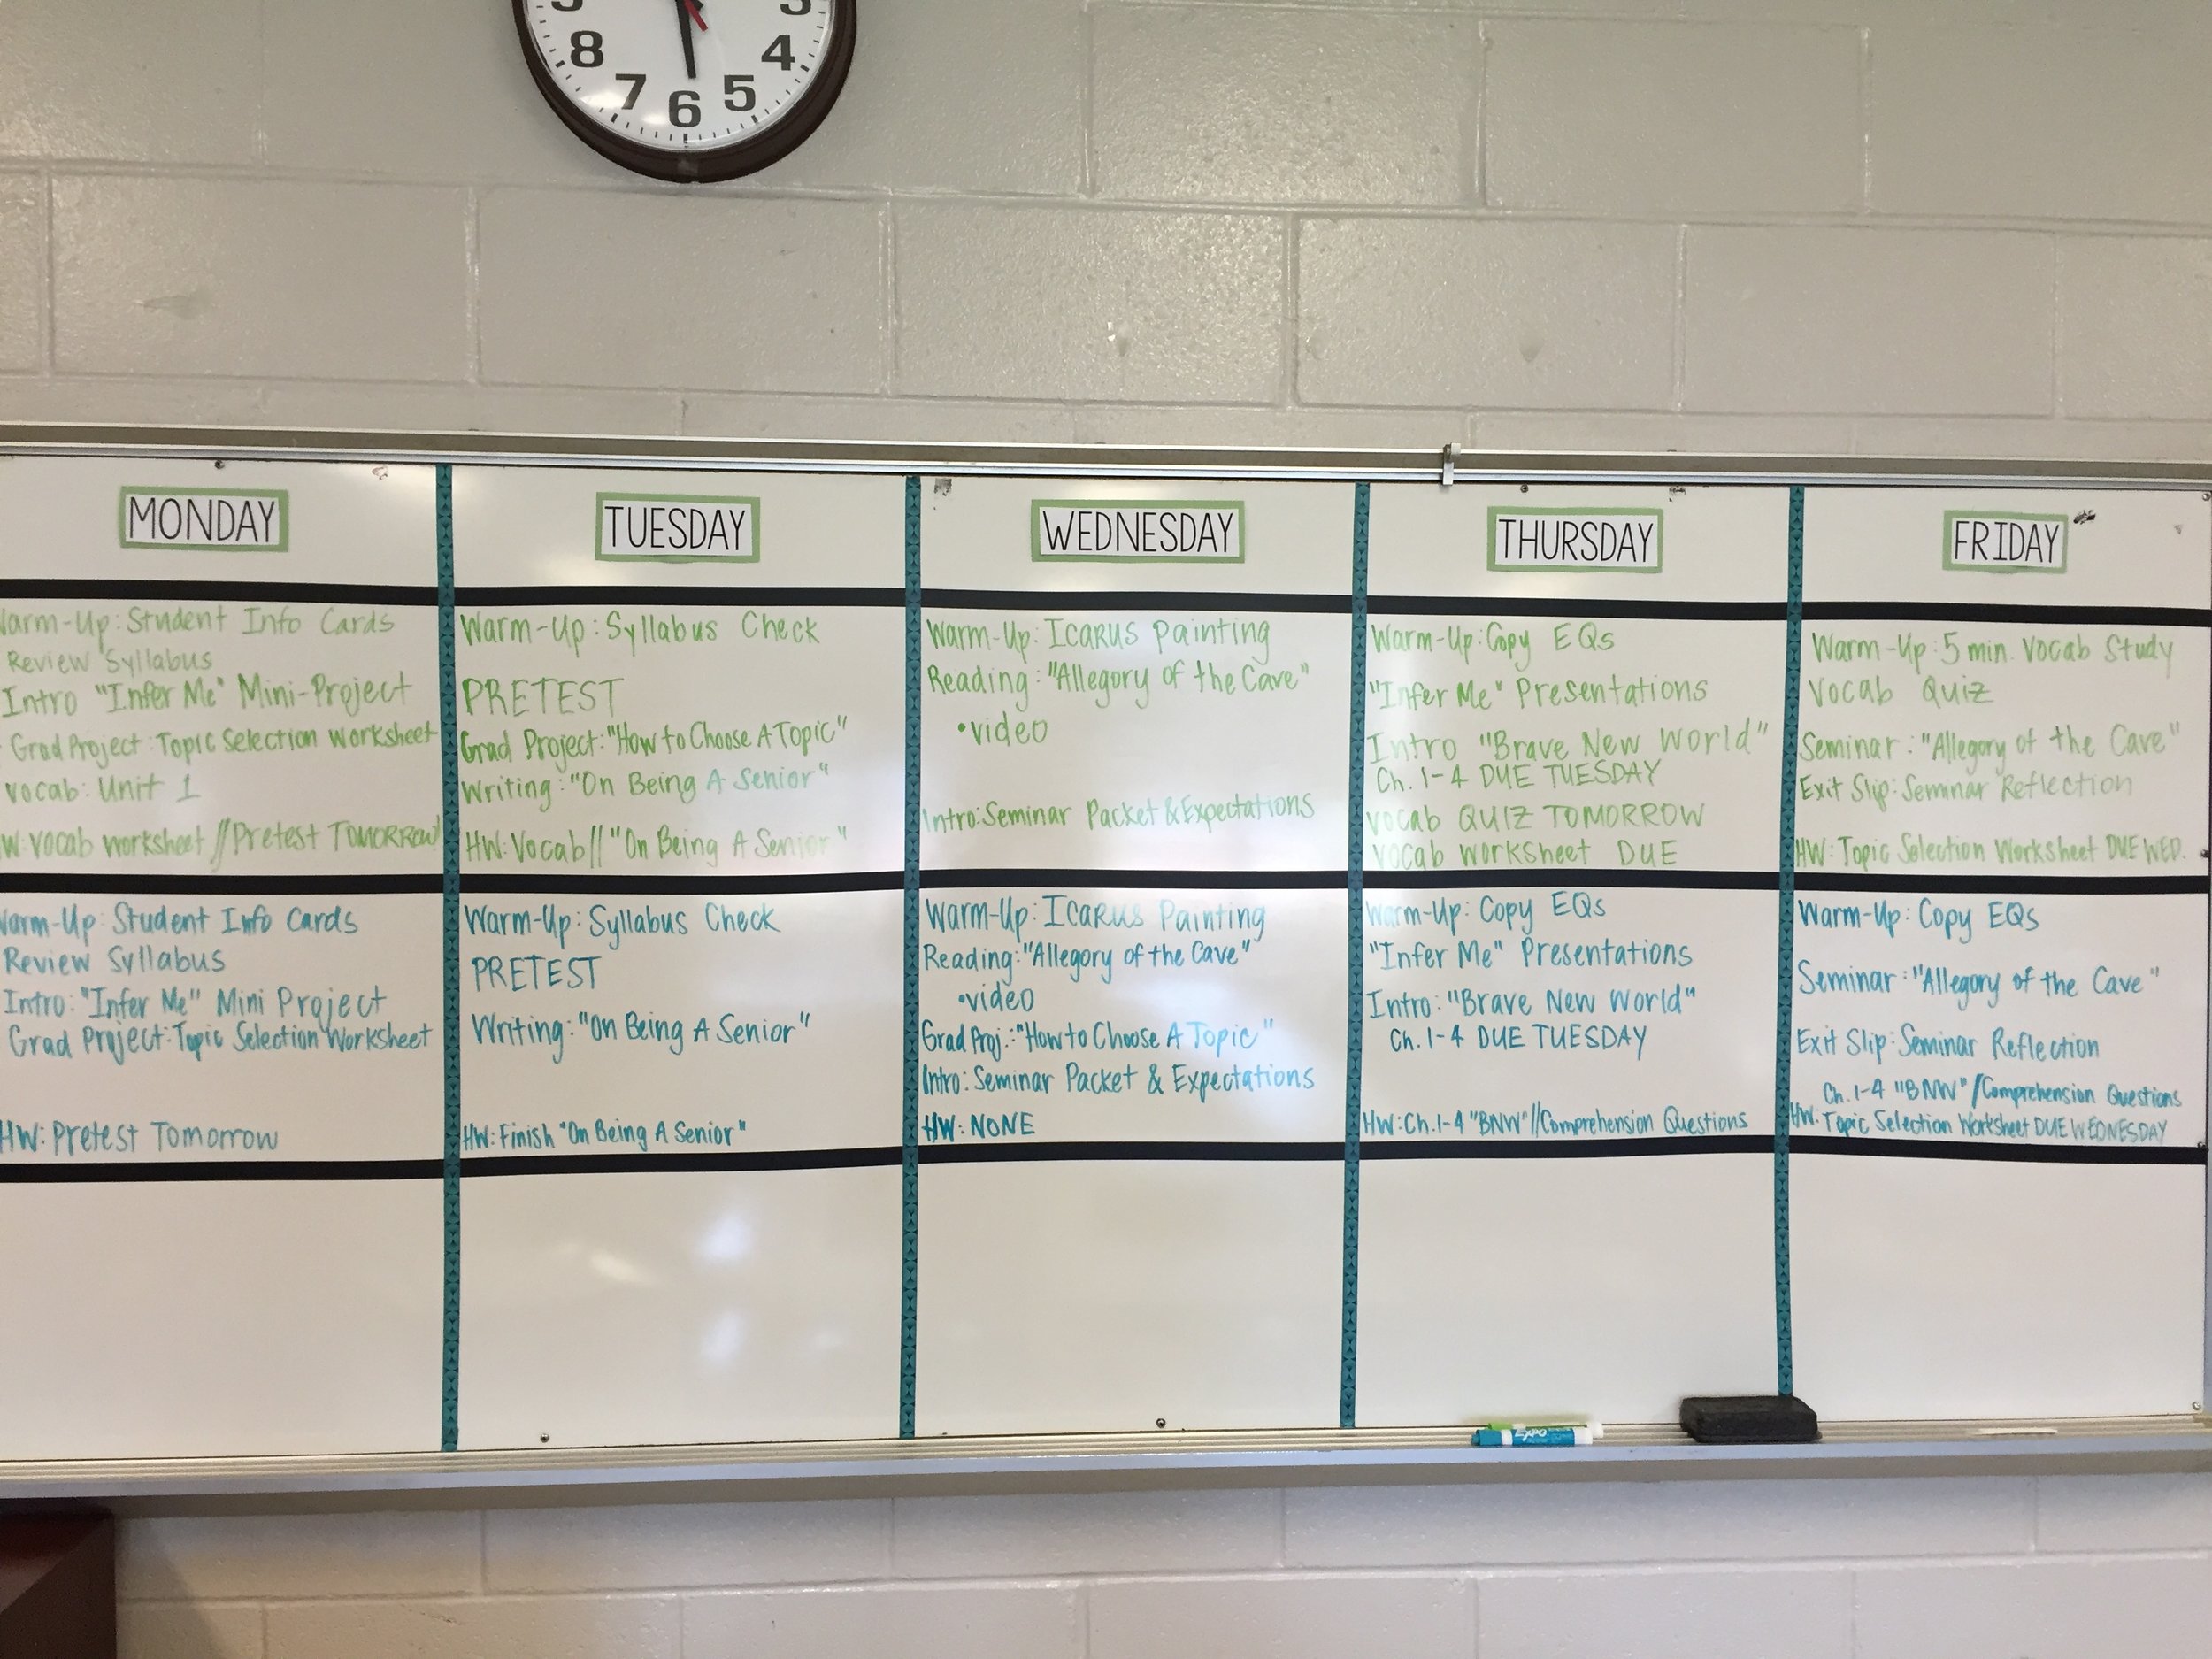 8
7
6
5
4
MONDAY
TUESDAY
WEDNESDAY
THURSDAY
FRIDAY
Warm-Up: Student Info Cards
Review Syllabus
Intro "Infer Me" Mini-Project
Grad Project: Topic Selection Worksheet
Vocab: Unit 1
W: Vocab Worksheet // Pretest TOMORROW
Warm-Up: Syllabus Check
PRETEST
Grad Project: "How to Choose A Topic"
Writing: "On Being A Senior"
HW: Vocab // "On Being A Senior"
Warm-Up: Icarus Painting
Reading: "Allegory of the Cave"
• video
Intro: Seminar Packet & Expectations
Warm-Up: Copy EQs
"Infer Me" Presentations
Intro "Brave New World"
Ch. 1-4 DUE TUESDAY
Vocab QUIZ TOMORROW
Vocab Worksheet DUE
Warm-Up: 5 min. Vocab Study
Vocab Quiz
Seminar: "Allegory of the Cave"
Exit Slip: Seminar Reflection
HW: Topic Selection Worksheet DUE WED.
Warm-Up: Student Info Cards
Review Syllabus
Intro: "Infer Me" Mini Project
Grad Project: Topic Selection Worksheet
HW: Pretest Tomorrow
Warm-Up: Syllabus Check
PRETEST
Writing: "On Being A Senior"
HW: Finish "On Being A Senior"
Warm-Up: Icarus Painting
Reading: "Allegory of the Cave"
• video
Grad Proj.: "How to Choose A Topic"
Intro: Seminar Packet & Expectations
HW: NONE
Warm-Up: Copy EQs
"Infer Me" Presentations
Intro: "Brave New World"
Ch. 1-4 DUE TUESDAY
HW: Ch. 1-4 "BNW" // Comprehension Questions
Warm-Up: Copy EQs
Seminar: "Allegory of the Cave"
Exit Slip: Seminar Reflection
Ch. 1-4 "BNW" / Comprehension Questions
HW: Topic Selection Worksheet DUE WEDNESDAY
Expo